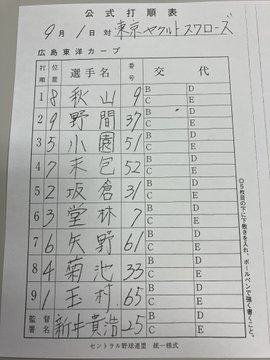 公式打順表
9月1日対東京ヤクルトスワローズ
広島東洋カープ
打順 位置 選手名 番号 交代
1 8 秋山 9 B D C E
2 9 野間 37 B D C E
3 5 小園 51 B D C E
4 7 末包 52 B D C E
5 2 坂倉 31 B D C E
6 3 堂林 7 B D C E
7 6 矢野 61 B D C E
8 4 菊池 33 B D C E
9 1 玉村 65 B D C E
監督署名 新井貴浩 25 B D C E
セントラル野球連盟 統一様式
◎5枚目の下に下敷きを入れ、ボールペンで強く書くこと。